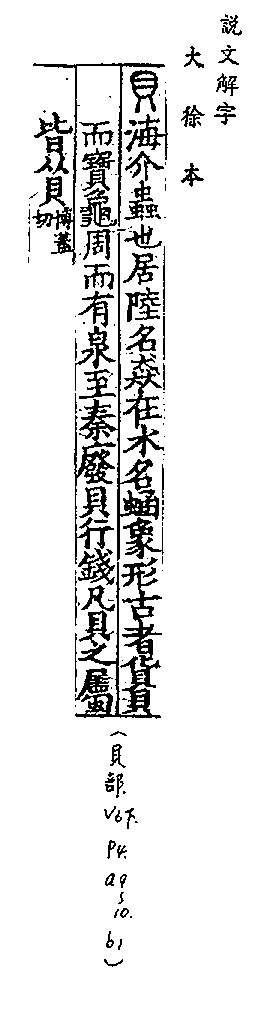 説文解字
大徐本
貝海介蟲也居陸名猋在水名蜬象形古者貨貝
而寶龜周而有泉至秦廢貝行錢凡貝之屬
皆从貝博蓋切
(貝部.V6下.P4.a9~10.b1)